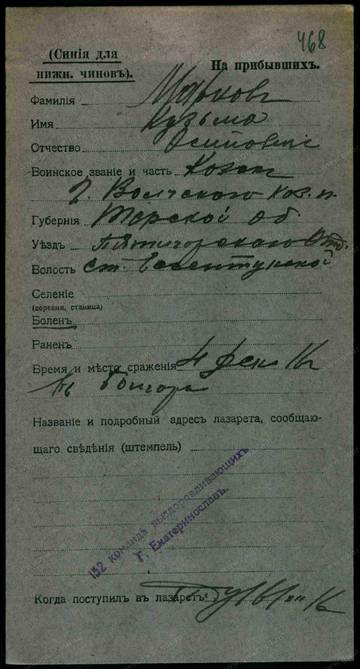 468
(Синія для
нижн. чиновъ).
На прибывшихъ.
Фамилія Марковъ
Имя Кузьма
Отчество Осиповичъ
Воинское званіе и часть Козак
2. Волгского каз. п.
Губернія Терской об
Уѣздъ Пятигорского Отд.
Волость ст. Ессентукской
Селеніе
(деревня, станица)
Боленъ
Раненъ
Время и мѣсто сраженія 4 16
Названіе и подробный адресъ лазарета, сообщаю-
щаго свѣдѣнія (штемпель)
152 команда выздоравливающихъ
Г. Екатеринославъ.
Когда поступилъ въ лазаретъ 16